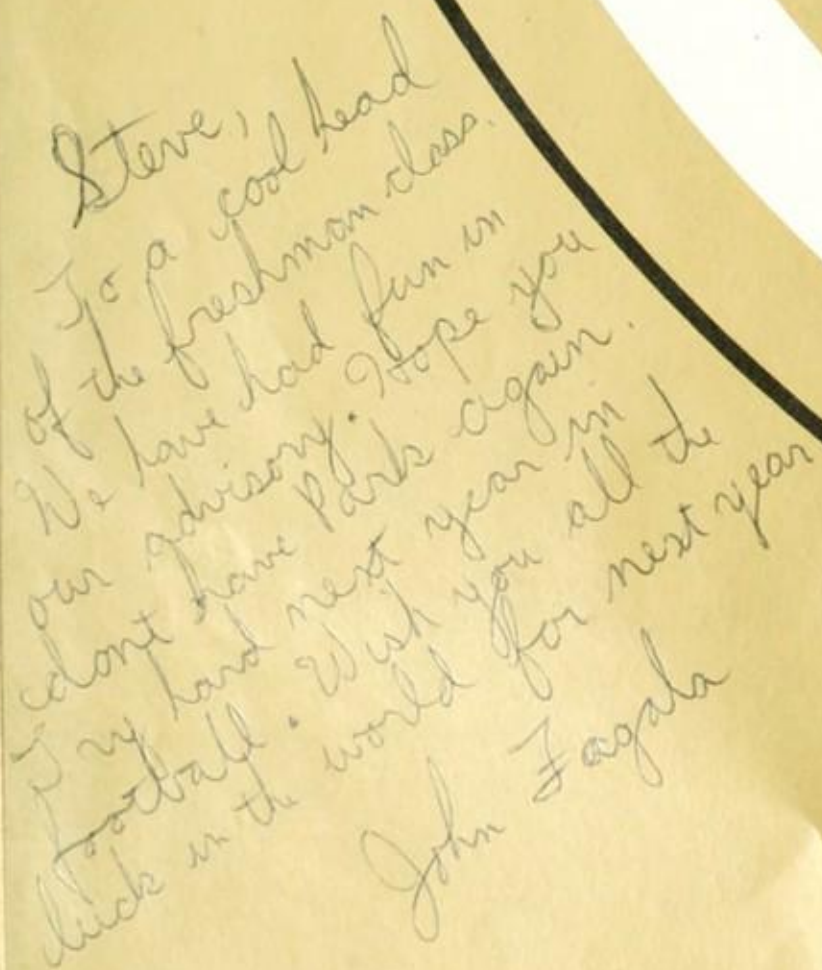 Steve,
To a cool head
of the freshman class.
We have had fun in
our advisory. Hope you
dont have Park again.
Try hard next year in
football. Wish you all the
luck in the world for next year
John Fagala